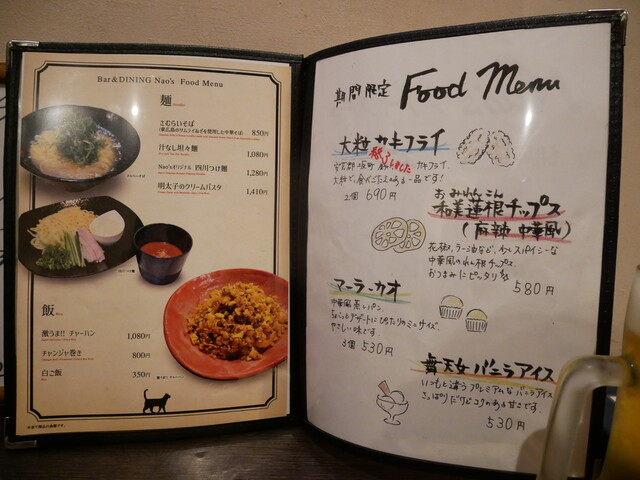 Bar&DINING Nao's Food Menu
麺
さむらいそば
(東広島のサムライねぎを使用した中華そば) 850円
汁なし坦々麺 1,080円
Nao'sオリジナル 四川つけ麺 1,280円
明太子のクリームパスタ 1,410円
飯
激うま!! チャーハン 1,080円
チャンジャ巻き 800円
白ご飯 350円
期間限定 Food Menu
大粒 カキフライ
終了しました
カキフライ.
大粒で、食べごたえのある一品です!
2個 690円
おみれんこん
和美蓮根チップス
(麻辣 中華風)
花椒、ラー油など、少しスパイシーな
中華風のれんこんチップス。
おつまみにピッタリ
580円
マーラーカオ
中華風蒸しパン.
ちょっとデザートにぴったりのミニサイズ.
やさしい味です.
3個 530円
天女 バニラアイス
いつもと違うプレミアムなバニラアイス
さっぱりだけどコクのある甘さです.
530円